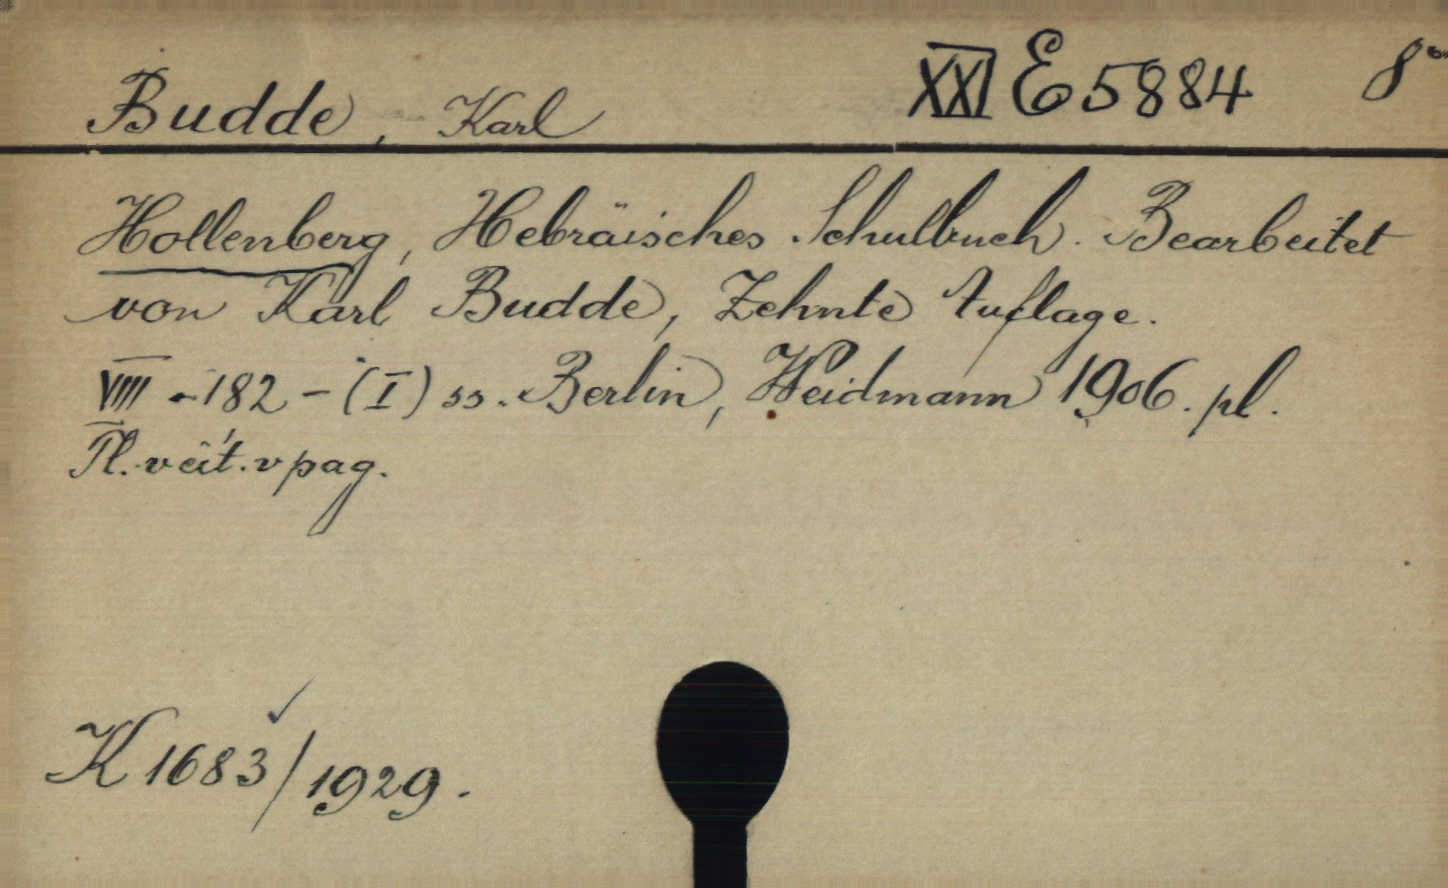 Budde, Karl XXI E 5884 8°
Hollenberg, Hebräisches Schulbuch. Bearbeitet
von Karl Budde, Zehnte Auflage.
VIII - 182 - (I) ss. Berlin, Weidmann 1906. pl.
Pl. vált. v pag.
K 1683/1929.